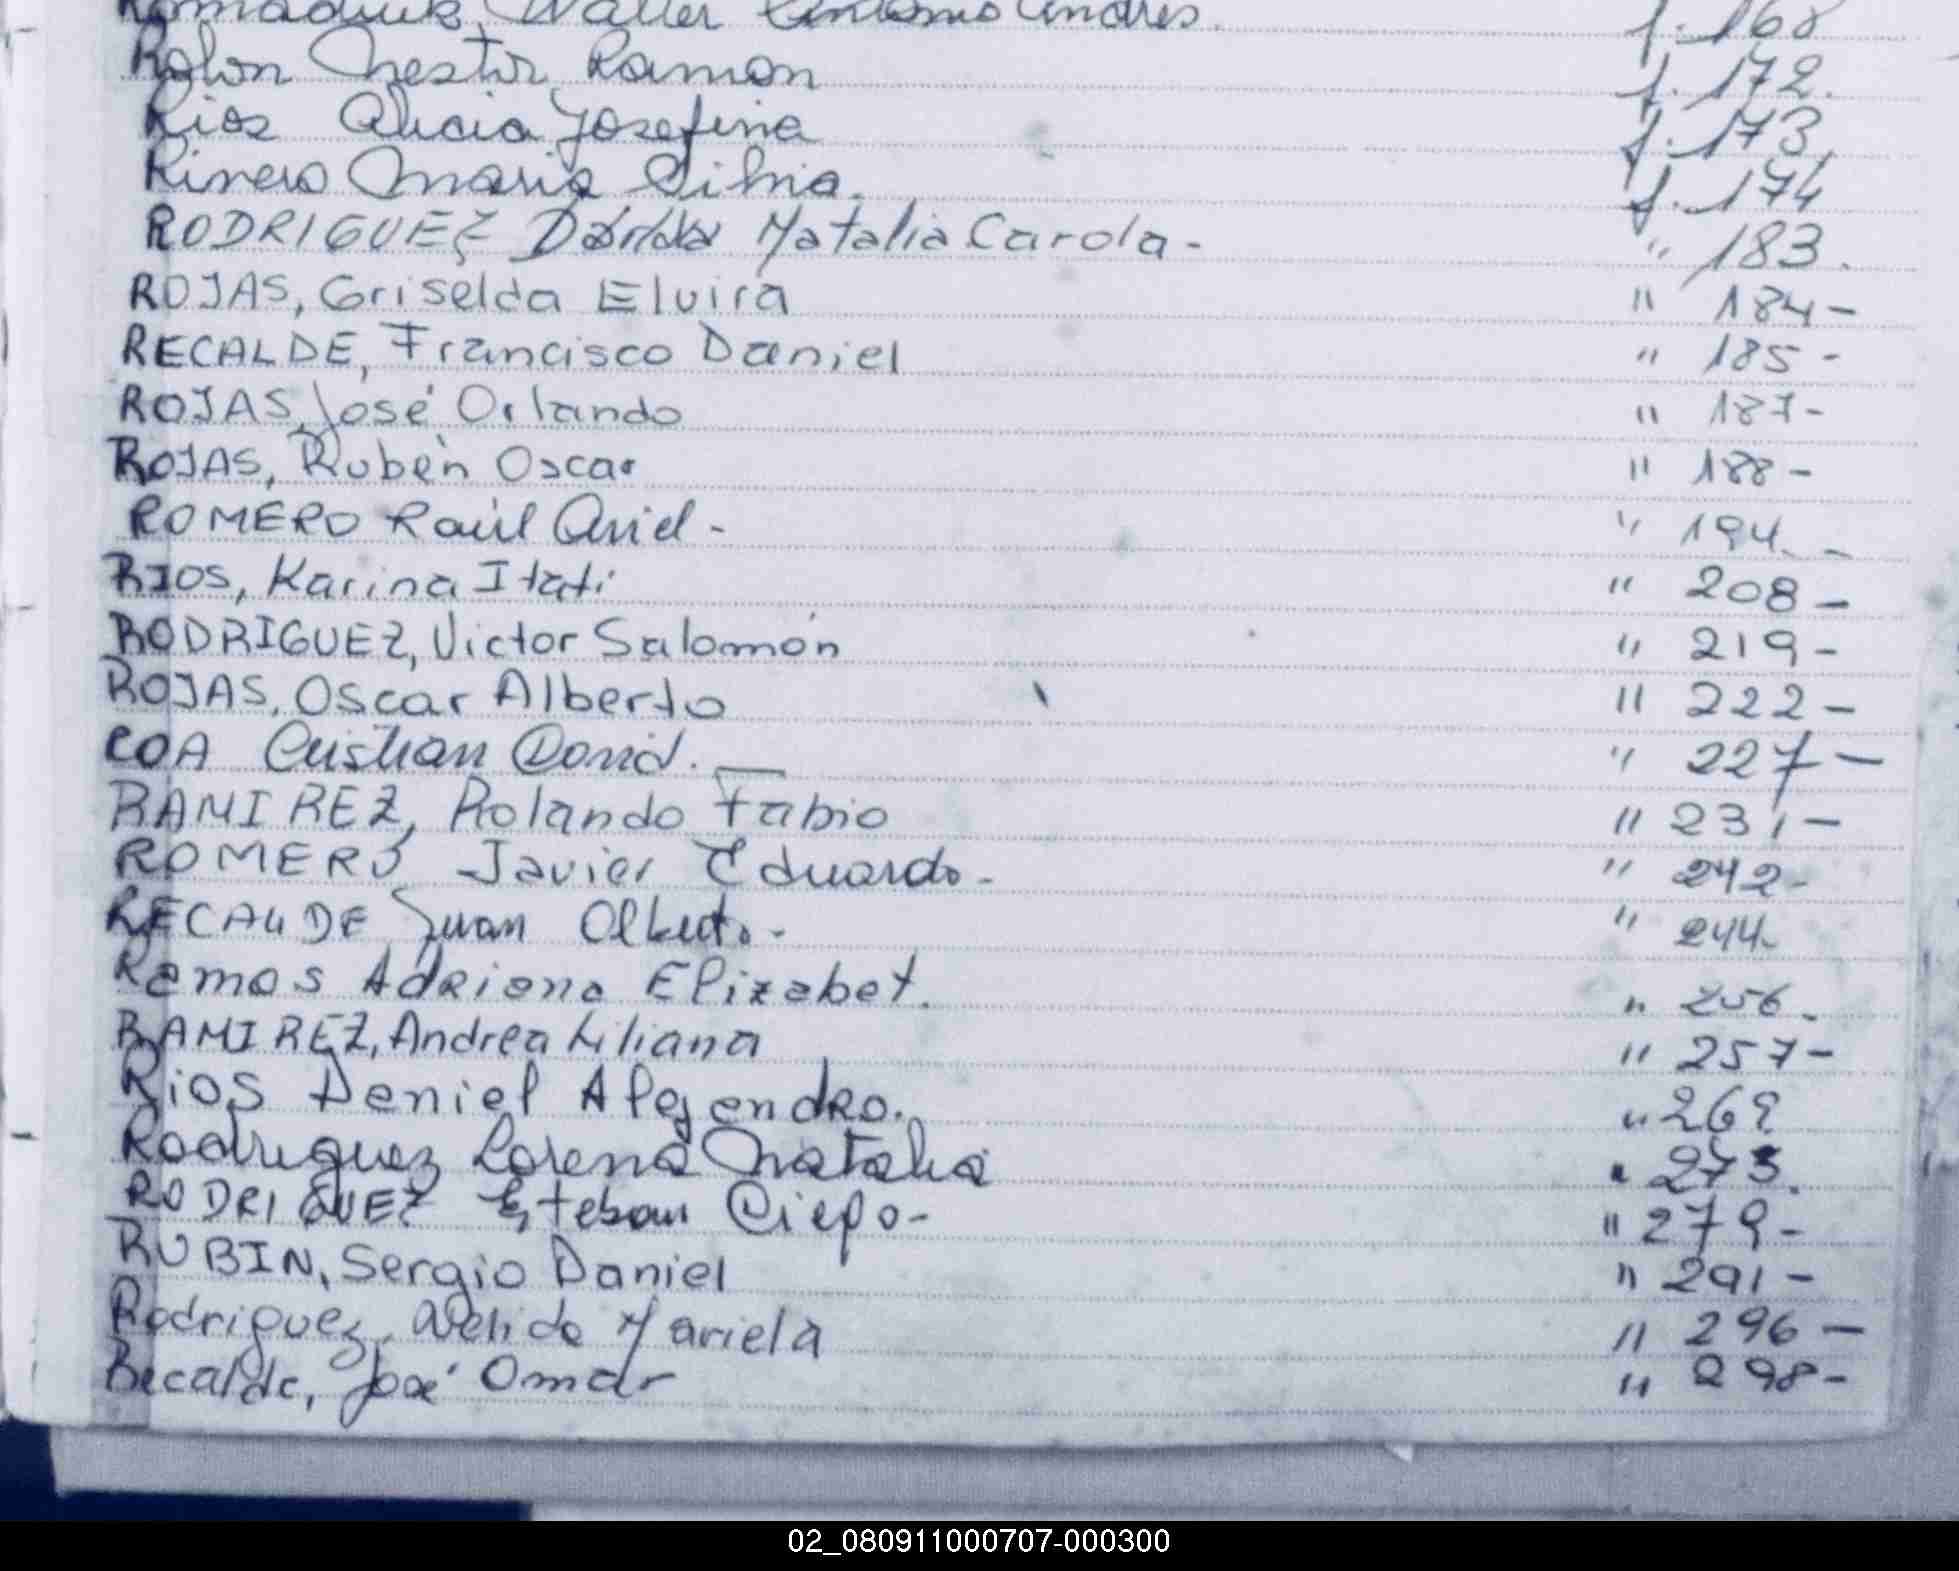 Romaduk, Walter Antonio Andres. f. 168
Rolon Nestor Ramon f. 172.
Rios Alicia Josefina f. 173.
Rivero Maria Silvia. f. 174
RODRIGUEZ Natalia Carola - " 183.
ROJAS, Griselda Elvira " 184 -
RECALDE, Francisco Daniel " 185 -
ROJAS, José Orlando " 187 -
ROJAS, Rubén Oscar " 188 -
ROMERO Raúl Ariel - " 194. -
RIOS, Karina Itati " 208 -
RODRIGUEZ, Victor Salomón " 219 -
ROJAS, Oscar Alberto " 222 -
COA Cristian David. — " 227 -
RAMIREZ, Rolando Fabio " 231 -
ROMERO Javier Eduardo - " 242 -
RECALDE Juan Alberto. - " 244 -
Ramos Adriana Elizabet. " 256.
RAMIREZ, Andrea Liliana " 257 -
Rios Daniel Alejandro. " 269
Rodriguez Lorena Natalia " 273.
RODRIGUEZ Esteban Diego - " 279 -
RUBIN, Sergio Daniel " 291 -
Rodriguez, Nelida Mariela " 296 -
Recalde, José Omar " 298 -
02_080911000707-000300